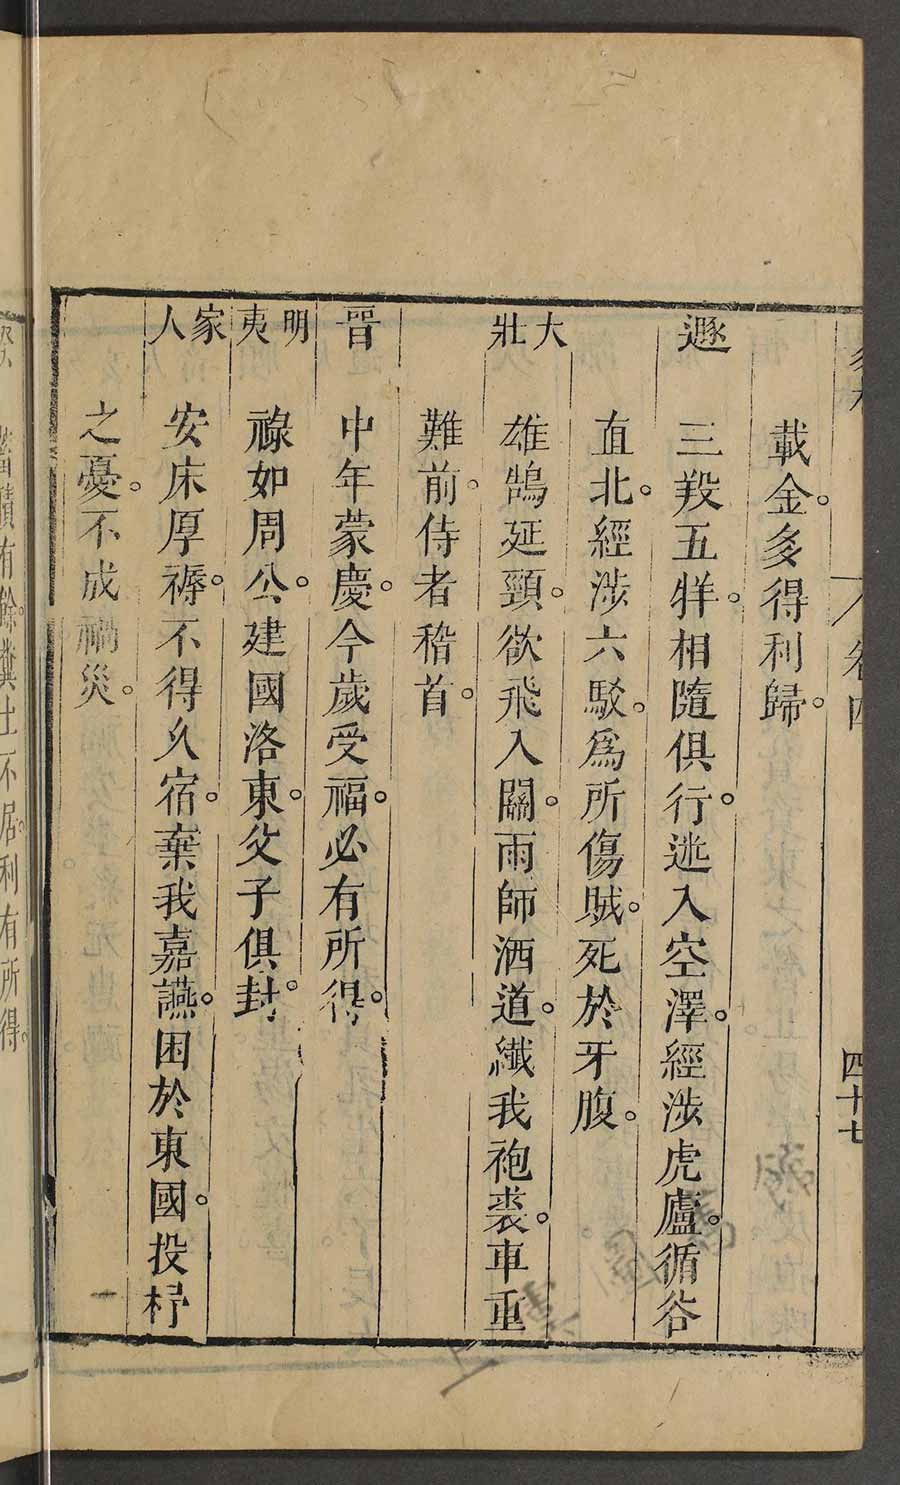 卷四
四十七
載金多得利歸。
遯 三羖五牂。相隨俱行。迯入空澤。經涉虎廬。循谷
直北。經涉六駁。爲所傷賊。死於牙腹。
大壯 雄鵠延頸。欲飛入關。雨師洒道。纎我袍裘。車重
難前。侍者稽首。
晉 中年蒙慶。今歲受福。必有所得。
明夷 祿如周公。建國洛東。父子俱封。
家人 安床厚褥。不得久宿。棄我嘉讌。困於東國。投杼
之憂。不成禍災。
有餘。糞土不居。利有所得。